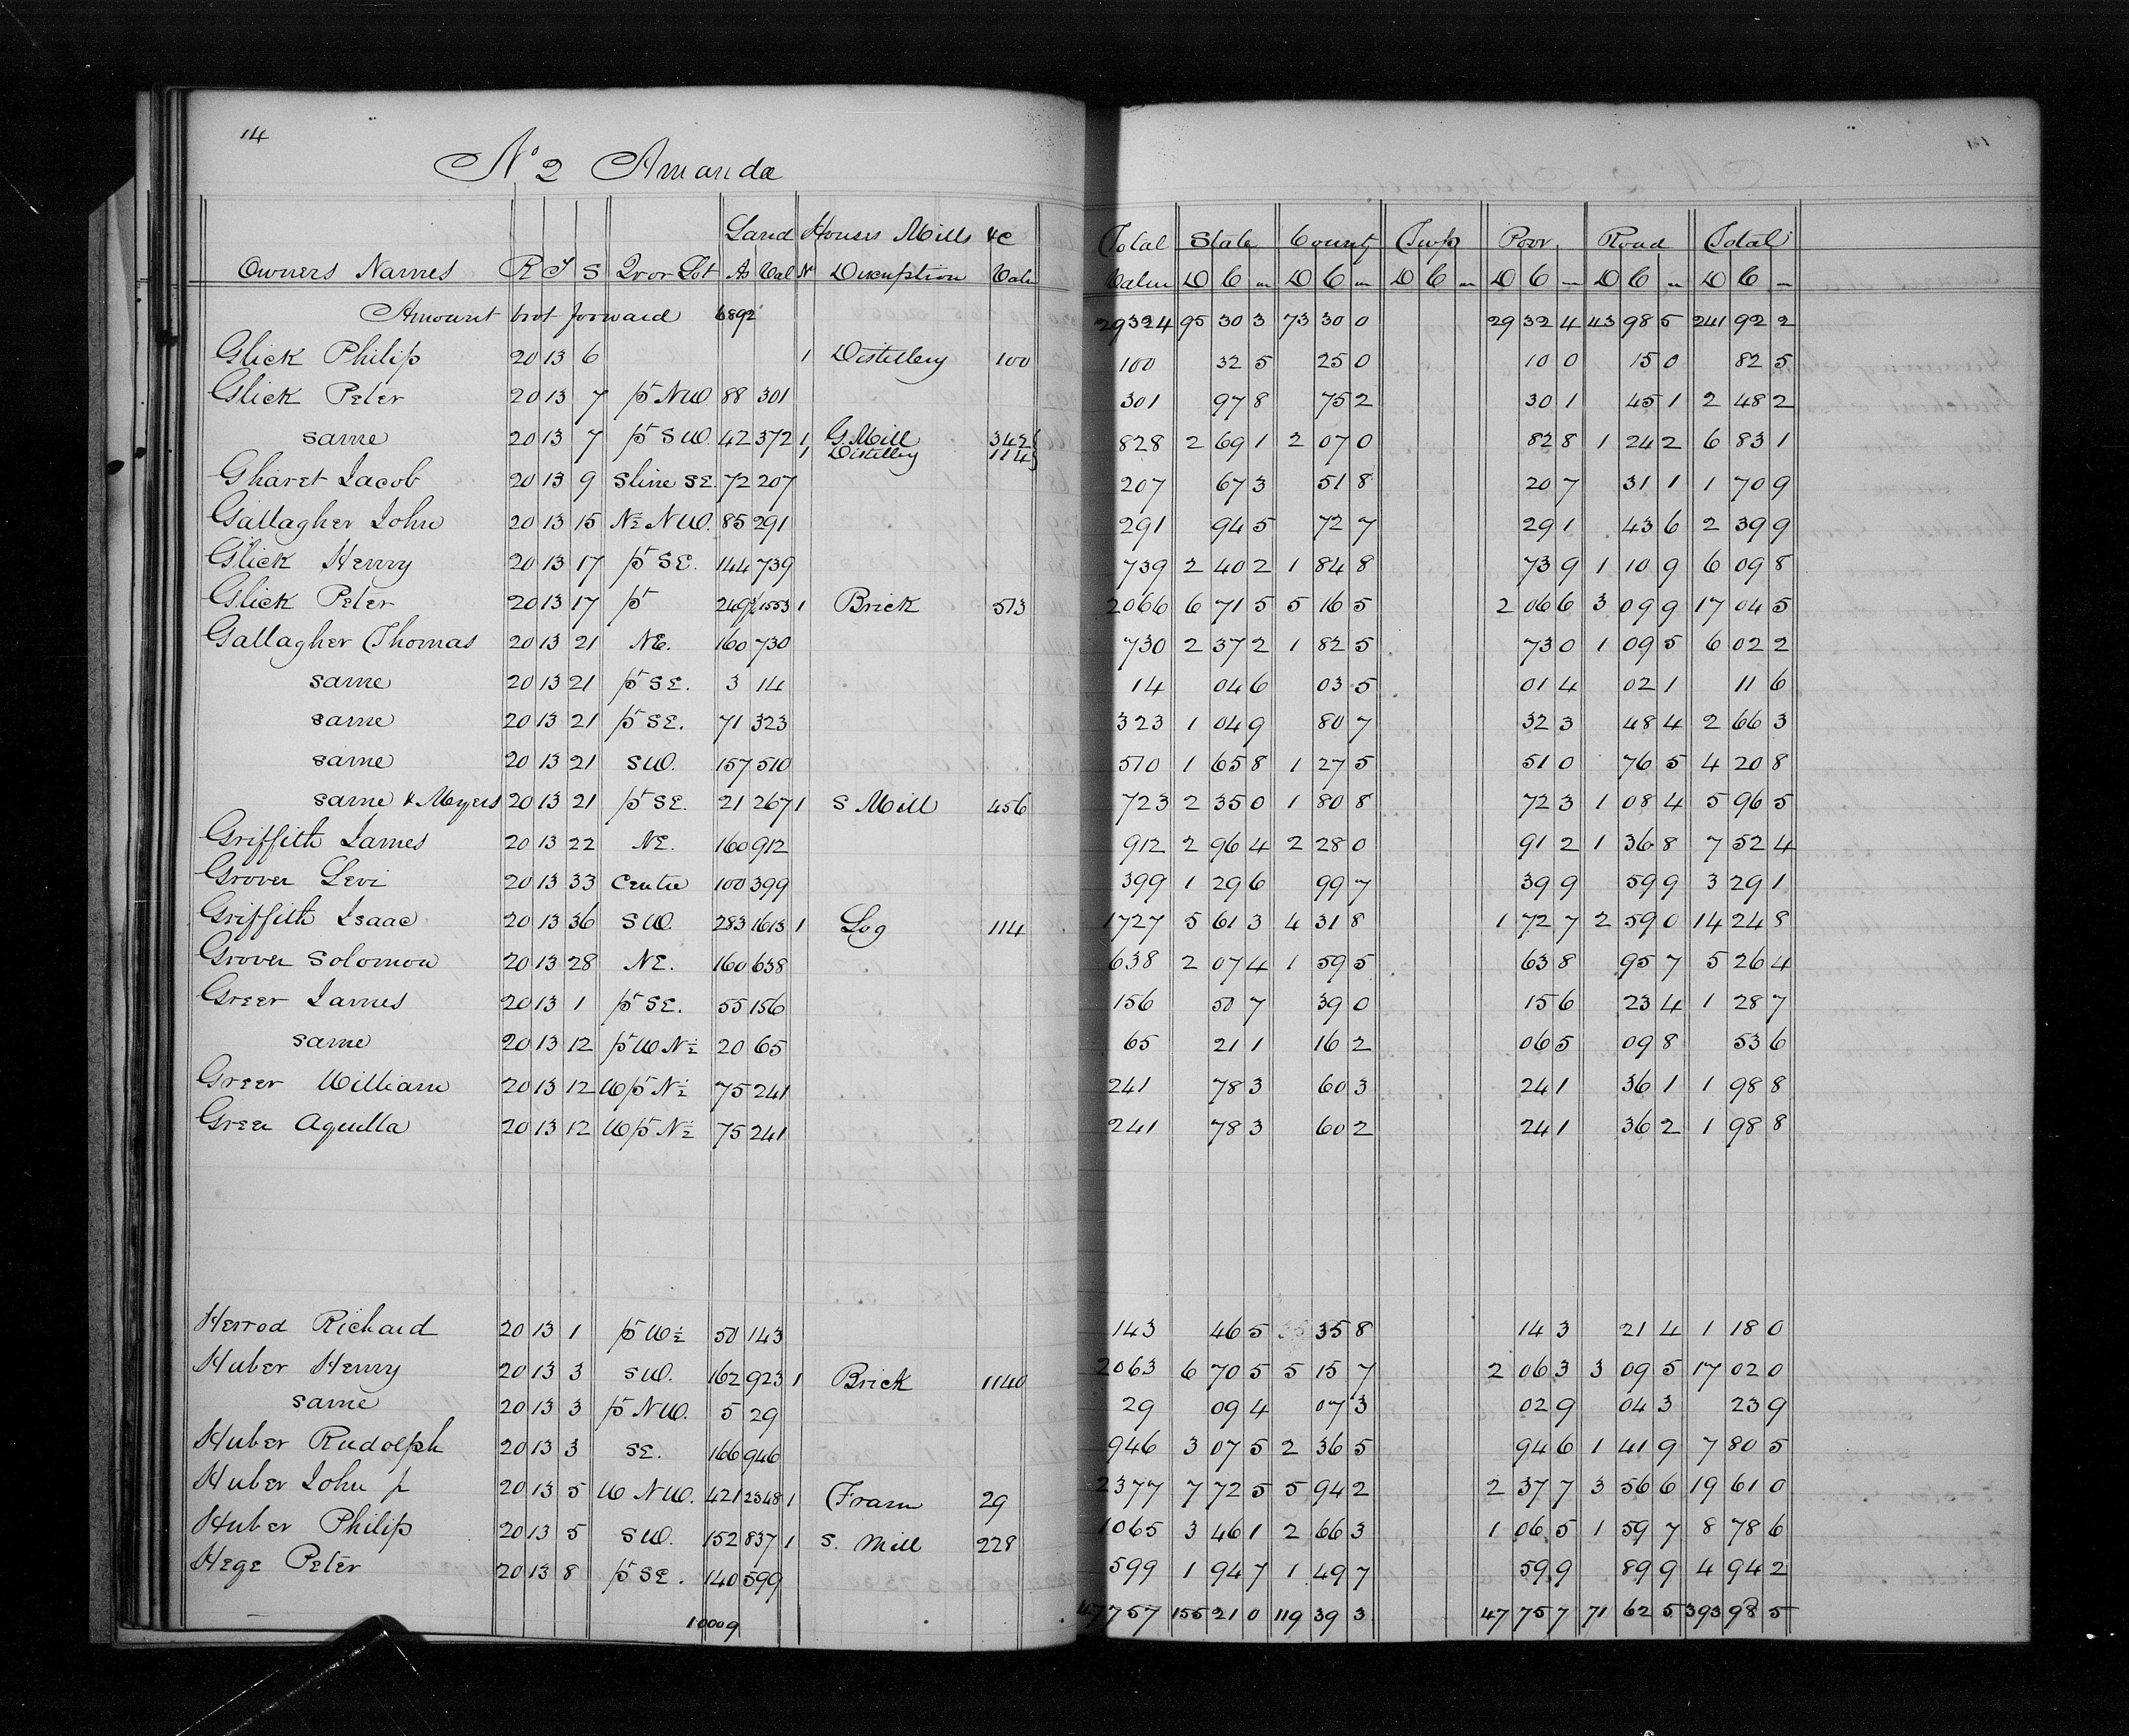 14
No 2 Amanda
Land Houses Mills &c Total State County Twp Poor Road Total
Owners Names R T S Qr or Lot As Val N Discription Valu Value D C m D C m D C m D C m D C m D C m
Amount brot forward 6892 29324 95 30 3 73 30 0 29 32 4 43 98 5 241 92 2
Glick Philip 20 13 6 1 Distillery 100 100 32 5 25 0 10 0 15 0 82 5
Glick Peter 20 13 7 pt NW 88 301 301 97 8 75 2 30 1 45 1 2 48 2
same 20 13 7 pt SW. 42 372 1 G. Mill 342 828 2 69 1 2 07 0 82 8 1 24 2 6 83 1
1 Distillery 114
Gharet Jacob 20 13 9 Sline SE. 72 207 207 67 3 51 8 20 7 31 1 1 70 9
Gallagher John 20 13 15 N½ NW. 85 291 291 94 5 72 7 29 1 43 6 2 39 9
Glick Henry 20 13 17 pt SE. 144 739 739 2 40 2 1 84 8 73 9 1 10 9 6 09 8
Glick Peter 20 13 17 pt 249½ 1553 1 Brick 513 2066 6 71 5 5 16 5 2 06 6 3 09 9 17 04 5
Gallagher Thomas 20 13 21 NE. 160 730 730 2 37 2 1 82 5 73 0 1 09 5 6 02 2
same 20 13 21 pt SE. 3 14 14 04 6 03 5 01 4 02 1 11 6
same 20 13 21 pt SE. 71 323 323 1 04 9 80 7 32 3 48 4 2 66 3
same 20 13 21 SW. 157 510 510 1 65 8 1 27 5 51 0 76 5 4 20 8
same & Meyers 20 13 21 pt SE. 21 267 1 S Mill 456 723 2 35 0 1 80 8 72 3 1 08 4 5 96 5
Griffith James 20 13 22 NE. 160 912 912 2 96 4 2 28 0 91 2 1 36 8 7 52 4
Grover Levi 20 13 33 Centre 100 399 399 1 29 6 99 7 39 9 59 9 3 29 1
Griffith Isaac 20 13 36 SW. 283 1613 1 Log 114 1727 5 61 3 4 31 8 1 72 7 2 59 0 14 24 8
Grover Solomon 20 13 28 NE. 160 638 638 2 07 4 1 59 5 63 8 95 7 5 26 4
Greer James 20 13 1 pt SE. 55 156 156 50 7 39 0 15 6 23 4 1 28 7
same 20 13 12 pt W N½ 20 65 65 21 1 16 2 06 5 09 8 53 6
Greer William 20 13 12 W pt N½ 75 241 241 78 3 60 3 24 1 36 1 1 98 8
Greer Aquilla 20 13 12 W pt N½ 75 241 241 78 3 60 2 24 1 36 2 1 98 8
Herrod Richard 20 13 1 pt W½ 50 143 143 46 5 35 8 14 3 21 4 1 18 0
Huber Henry 20 13 3 SW. 162 923 1 Brick 1140 2063 6 70 5 5 15 7 2 06 3 3 09 5 17 02 0
same 20 13 3 pt NW. 5 29 29 09 4 07 3 02 9 04 3 23 9
Huber Rudolph 20 13 3 SE. 166 946 946 3 07 5 2 36 5 94 6 1 41 9 7 80 5
Huber John 20 13 5 W NW. 421 2348 1 Fram 29 2377 7 72 5 5 94 2 2 37 7 3 56 6 19 61 0
Huber Philip 20 13 5 SW. 152 837 1 S. Mill 228 1065 3 46 1 2 66 3 1 06 5 1 59 7 8 78 6
Hege Peter 20 13 8 pt SE. 140 599 599 1 94 7 1 49 7 59 9 89 9 4 94 2
10009 47757 155 21 0 119 39 3 47 75 7 71 62 5 393 98 5